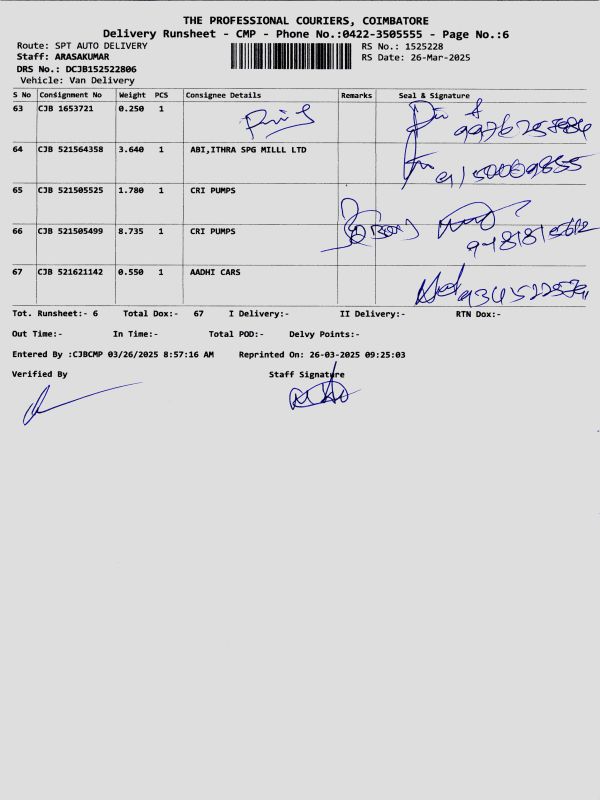 THE PROFESSIONAL COURIERS, COIMBATORE
Delivery Runsheet - CMP - Phone No.:0422-3505555 - Page No.:6
Route: SPT AUTO DELIVERY
RS No.: 1525228
Staff: ARASAKUMAR
RS Date: 26-Mar-2025
DRS No.: DCJB152522806
Vehicle: Van Delivery
S No Consignment No Weight PCS Consignee Details Remarks Seal & Signature
63 CJB 1653721 0.250 1
64 CJB 521564358 3.640 1 ABI,ITHRA SPG MILLL LTD
65 CJB 521505525 1.780 1 CRI PUMPS
66 CJB 521505499 8.735 1 CRI PUMPS
67 CJB 521621142 0.550 1 AADHI CARS
Tot. Runsheet:- 6 Total Dox:- 67 I Delivery:- II Delivery:- RTN Dox:-
Out Time:- In Time:- Total POD:- Delvy Points:-
Entered By :CJBCMP 03/26/2025 8:57:16 AM Reprinted On: 26-03-2025 09:25:03
Verified By Staff Signature